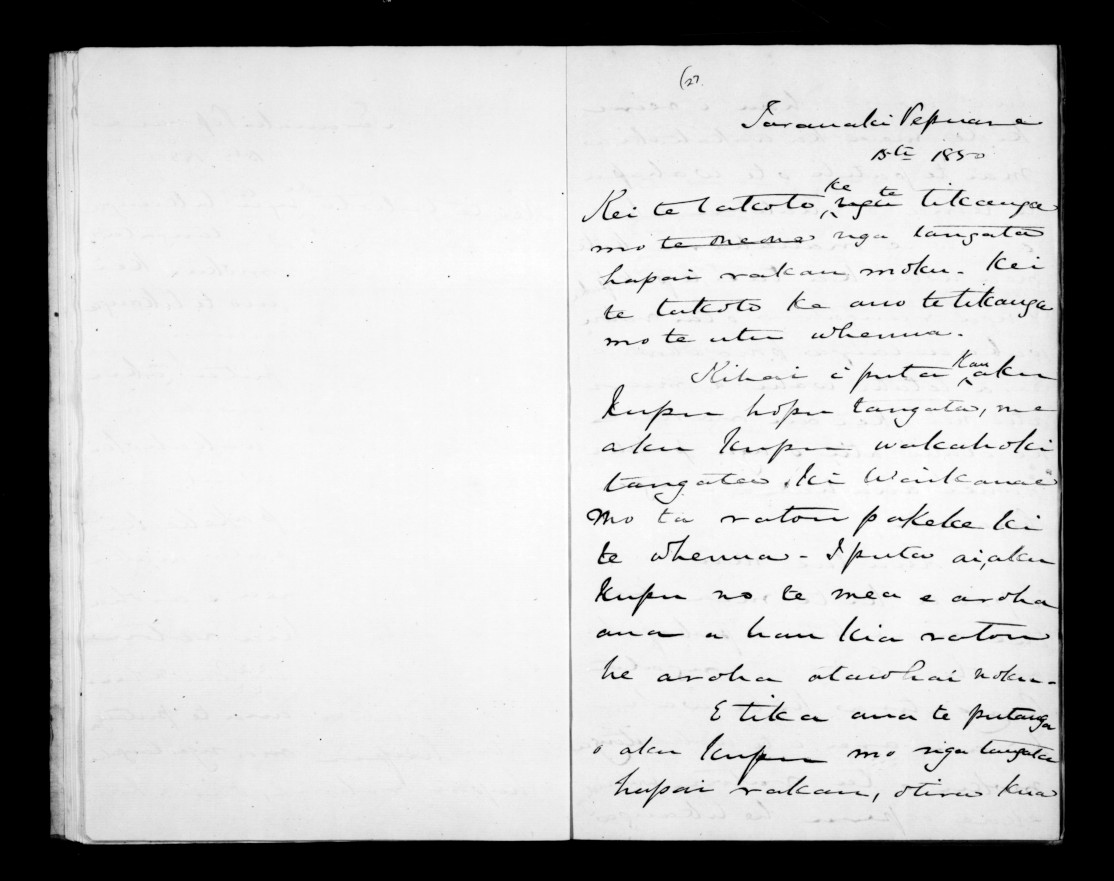 (27.
Taranaki Pepuare
15th 1850
Kei te takoto ke te tikanga
mo te oneone nga tangata
hapai rakau moku. Kei
te takoto ke ano te tikanga
mo te utu whenua.
Kihai i puta kau aku
kupu hopu tangata, me
aku kupu wakahoki
tangata ki Waikanae
mo ta ratou pakeke ki
te whenua - I puta ai aku
kupu no te mea e aroha
ana a hau kia ratou
he aroha atawhai noku -
E tika ana te putanga
o aku kupu mo nga tangata
hapai rakau, otira kua